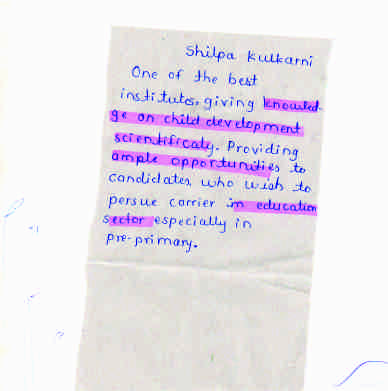 Shilpa Kulkarni
One of the best
institutes, giving knowled-
ge on child development
scientificaly. Providing
ample opportunities to
candidates, who wish to
persue carrier in education
sector especially in
pre-primary.